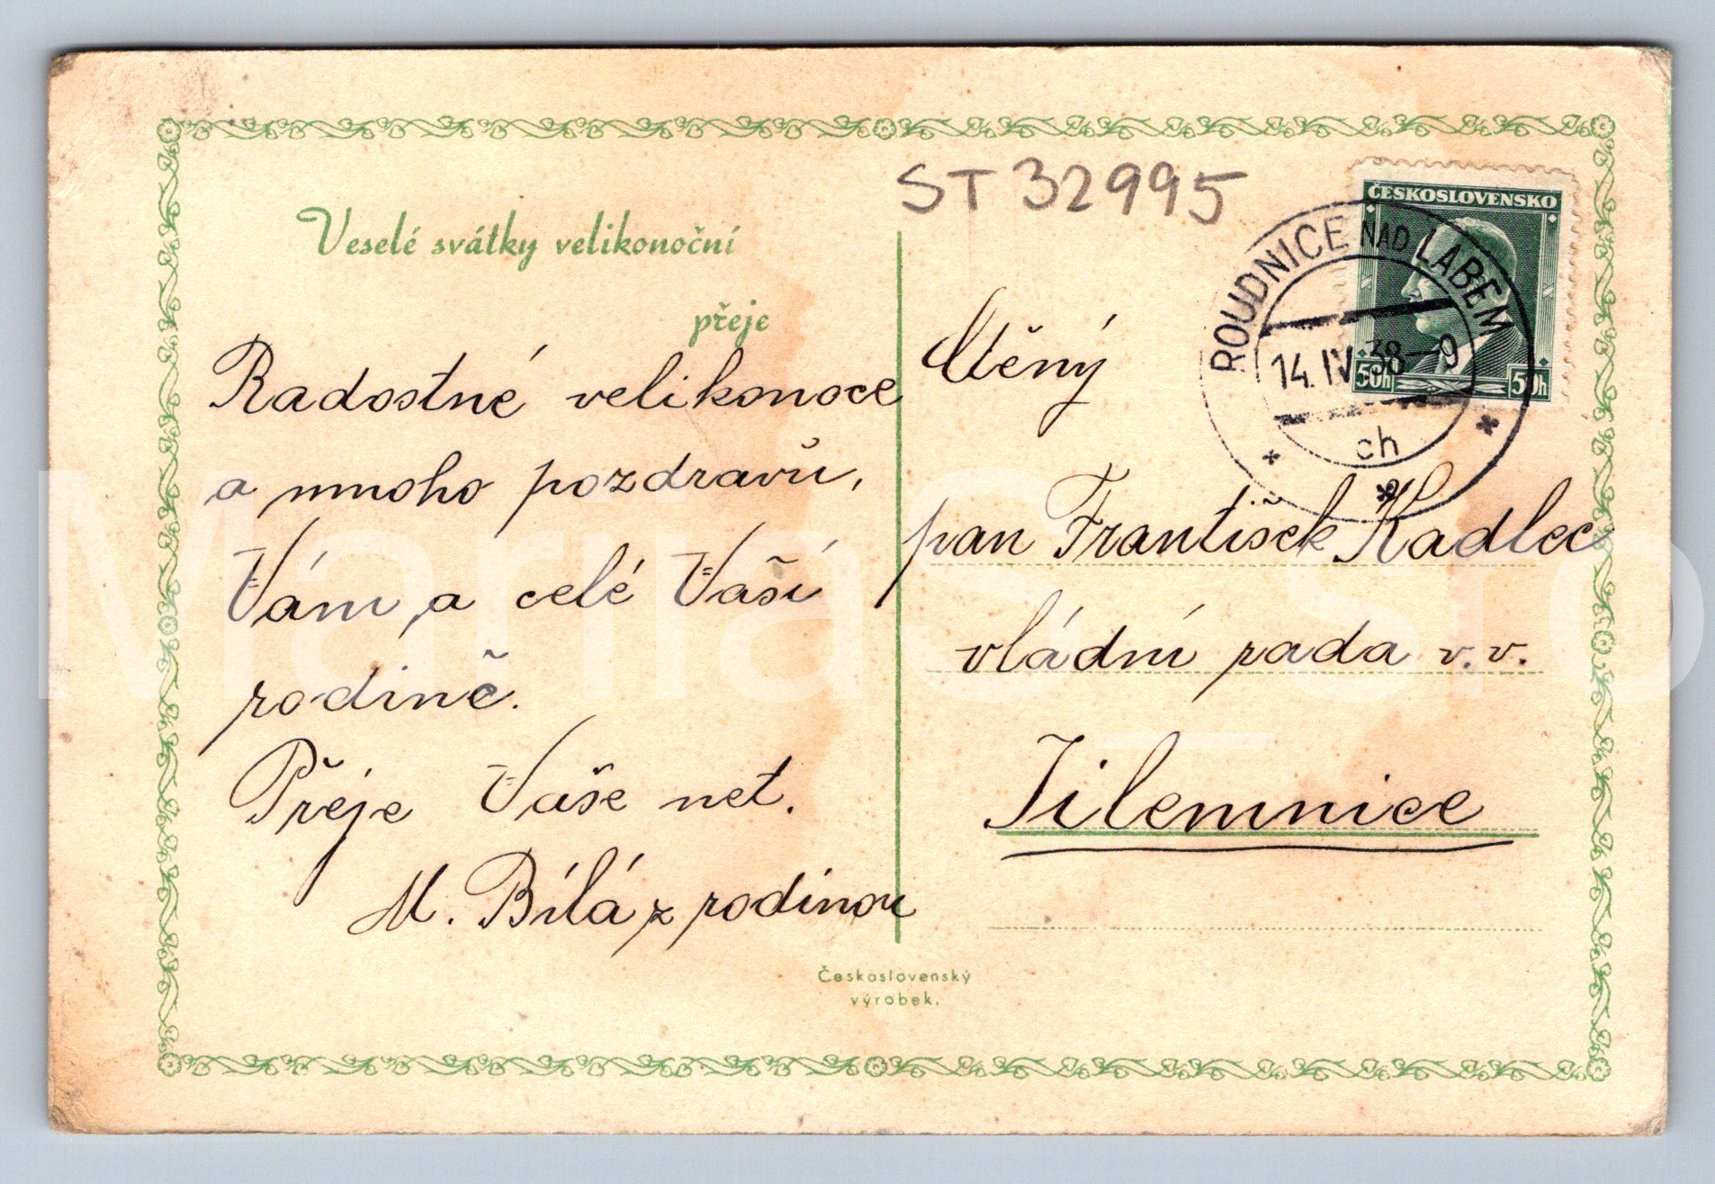 Veselé svátky velikonoční
přeje
Radostné velikonoce
a mnoho pozdravů,
Vám a celé Vaší
rodině.
Přeje Vaše net.
M. Bílá z rodinou
Československý
výrobek.
ST 32995
ČESKOSLOVENSKO
50h 50h
ROUDNICE NAD LABEM
14. IV. 38–9
ch
Ctěný
pan František Kadlec
vládní rada v.v.
Jilemnice